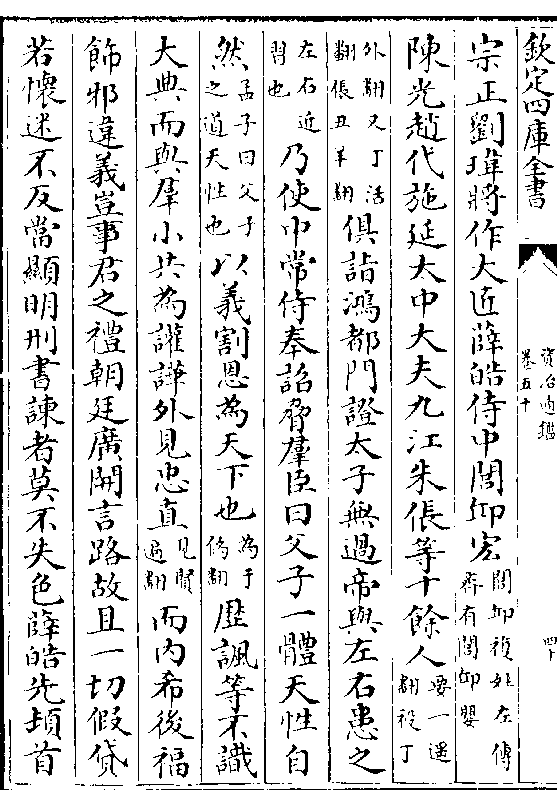 欽定四庫全書
資治通鑑
卷五十
四十
宗正劉瑋將作大匠薛皓侍中閭丘宏閭丘複姓左傳
齊有閭丘嬰
陳光趙代施延太中大夫九江朱倀等十餘人要一遥
翻祋丁
外翻又丁活
翻倀丑羊翻俱詣鴻都門證太子無過帝與左右患之
左右近
習也乃使中常侍奉詔脅羣臣曰父子一體天性自
然孟子曰父子
之道天性也以義割恩為天下也為于
偽翻歷諷等不識
大典而與羣小共為讙譁外見忠直見賢
遍翻而内希後福
飾邪違義豈事君之禮朝廷廣開言路故且一切假貸
若懷迷不反當顯明刑書諫者莫不失色薛皓先頓首